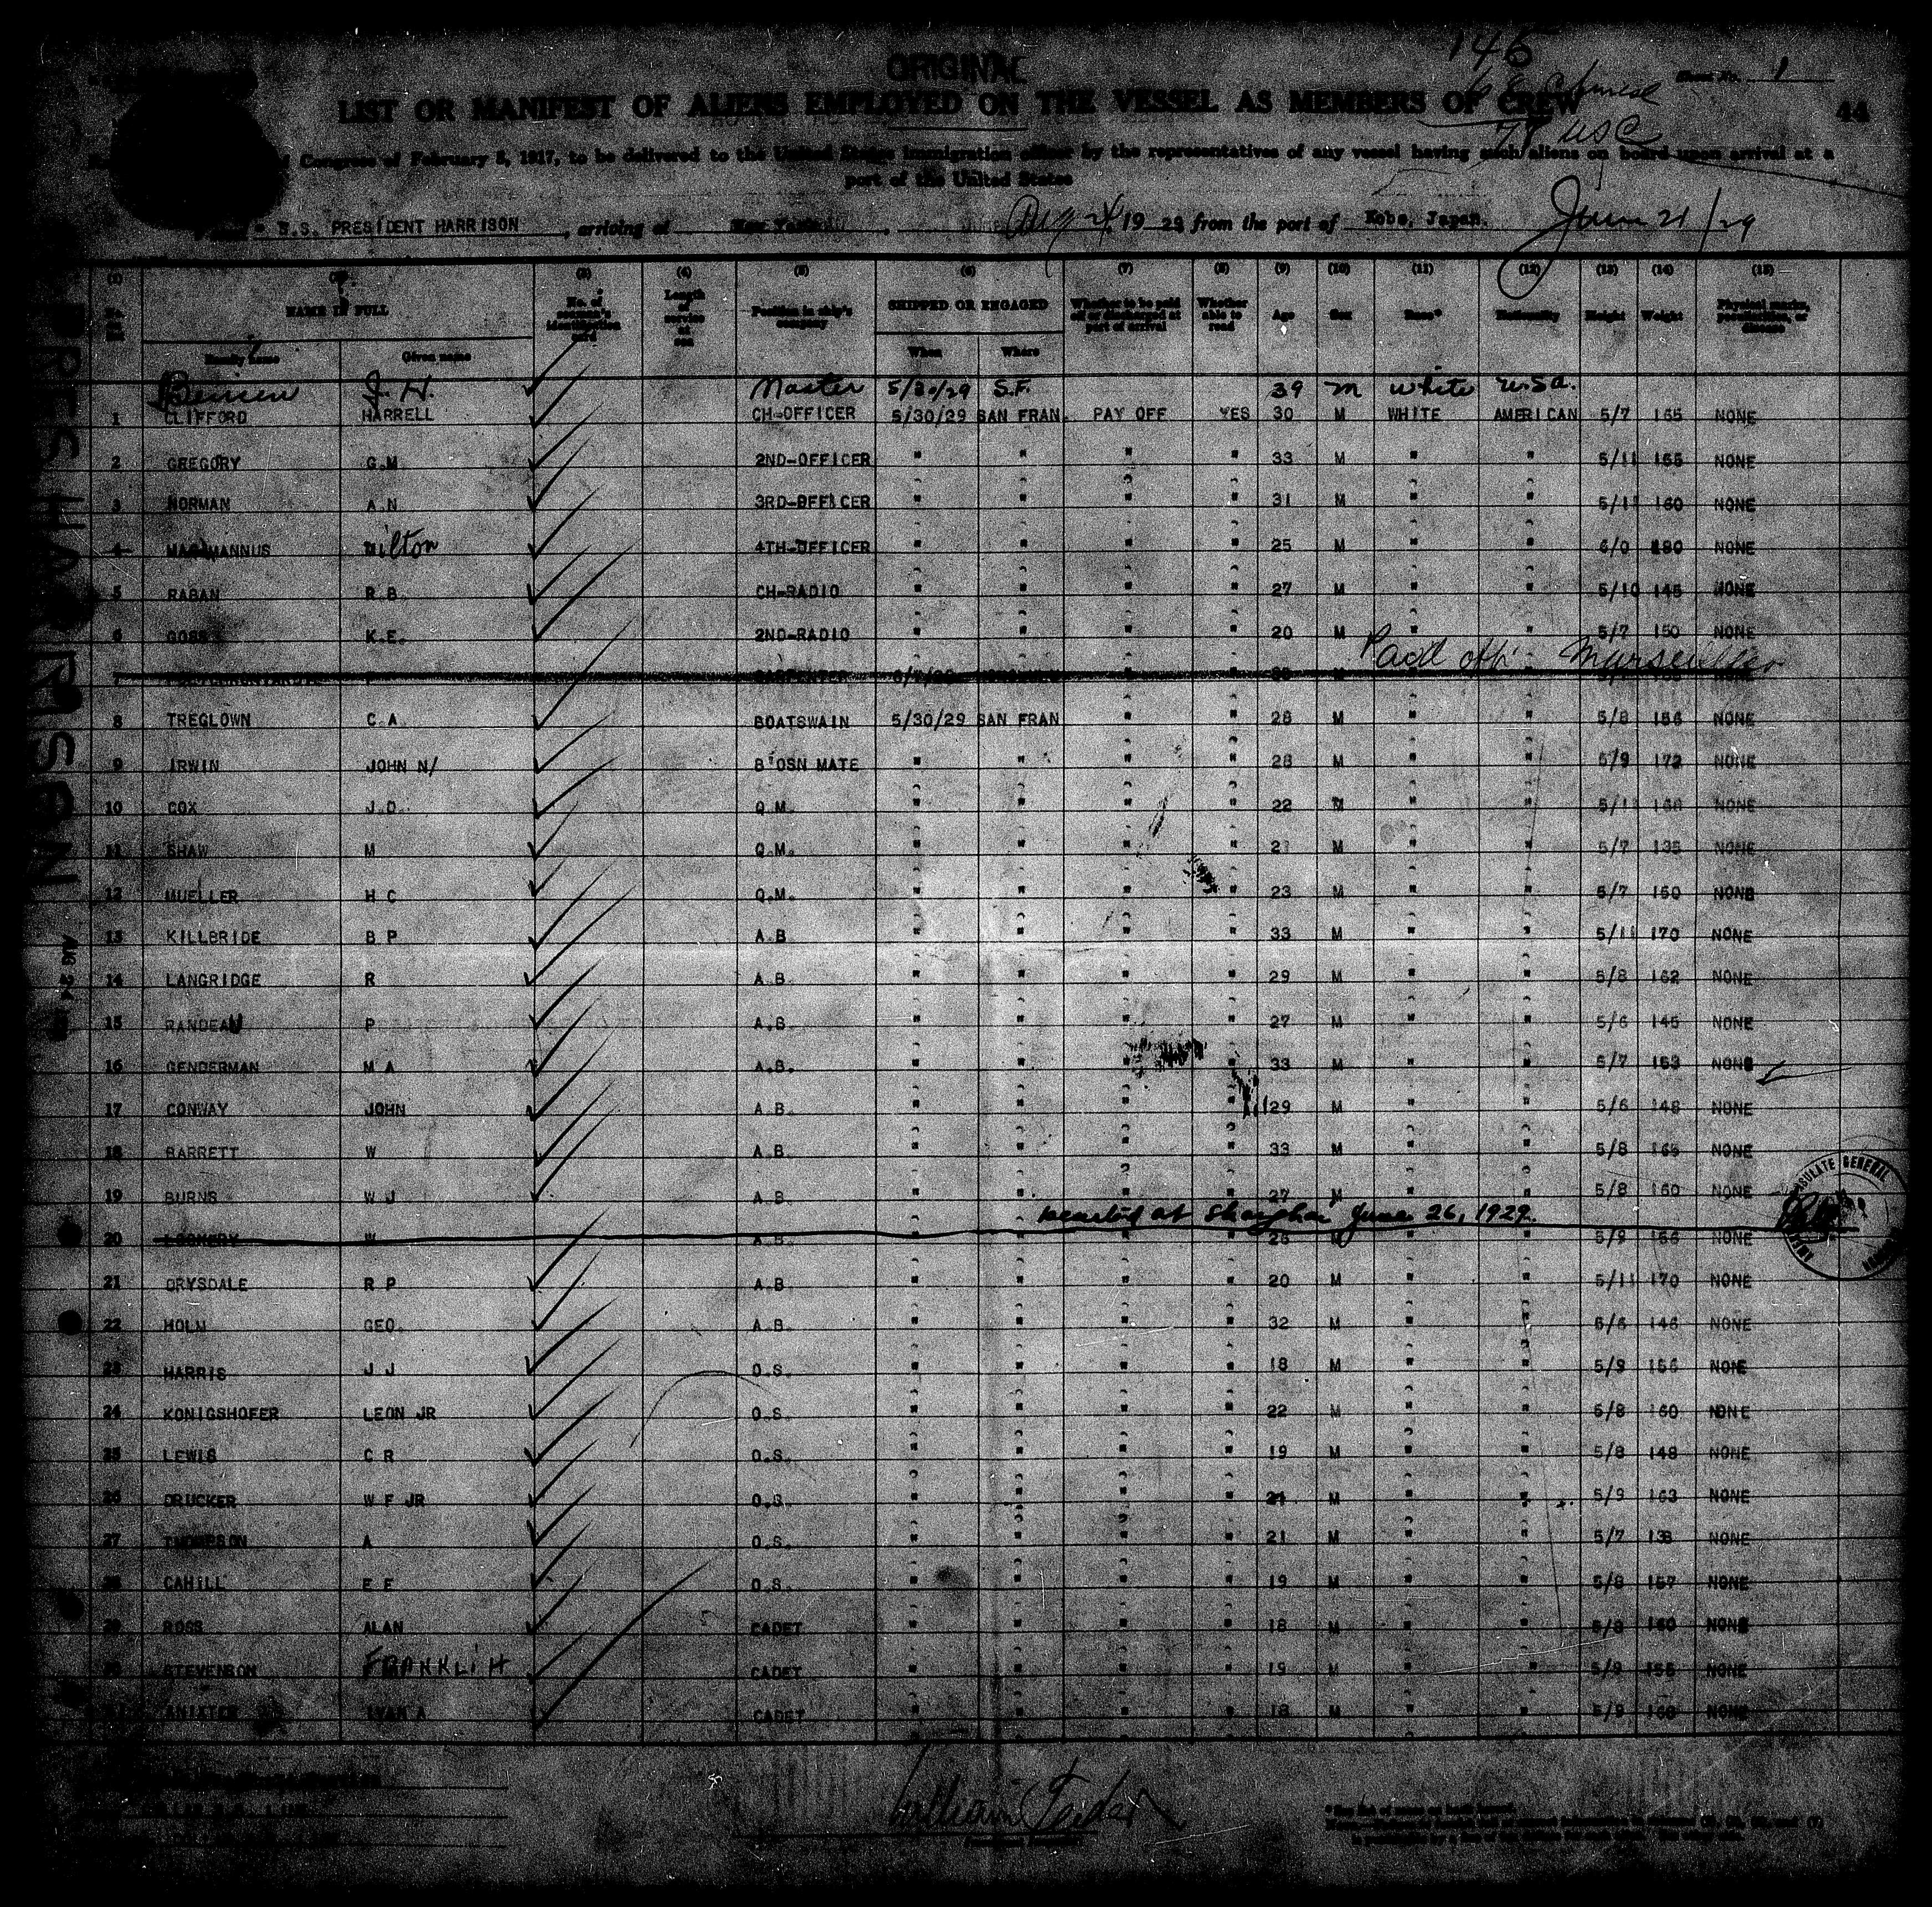 ORIGINAL
145
Sheet No. 1
LIST OR MANIFEST OF ALIENS EMPLOYED ON THE VESSEL AS MEMBERS OF CREW
Chinese
44
77 USC
Congress of February 5, 1917, to be delivered to the United States immigration officer by the representatives of any vessel having such aliens on board upon arrival at a
port of the United States
S.S. PRESIDENT HARRISON, arriving at New York, Aug 24, 1929 from the port of Kobe, Japan. June 21/29
(1) (2) (3) (4) (5) (6) (7) (8) (9) (10) (11) (12) (13) (14) (15)
No. on list NAME IN FULL No. of seaman's identification card Length of service at sea Position in ship's company SHIPPED OR ENGAGED Whether to be paid off or discharged at port of arrival Whether able to read Age Sex Race* Nationality Height Weight Physical marks, peculiarities, or disease
Family name Given name When Where
J. H. Master 5/30/29 S.F. 39 M White U.S.A.
1 CLIFFORD HARRELL CH-OFFICER 5/30/29 SAN FRAN. PAY OFF YES 30 M WHITE AMERICAN 5/7 165 NONE
2 GREGORY G.M. 2ND-OFFICER " " " " 33 M " " 5/11 165 NONE
3 NORMAN A.N 3RD-OFFICER " " " " 31 M " " 5/11 160 NONE
4 MANNUS Milton 4TH-OFFICER " " " " 25 M " " 6/0 180 NONE
5 RABAN R.B. CH-RADIO " " " " 27 M " " 5/10 145 NONE
6 GOSS K.E. 2ND-RADIO " " " " 20 M " " 5/7 150 NONE
Paid off Marseilles
7 CARPENTER
8 TREGLOWN C.A. BOATSWAIN 5/30/29 SAN FRAN " " 28 M " " 5/8 156 NONE
9 IRWIN JOHN N/ B'OSN MATE " " " " 28 M " " 5/9 172 NONE
10 COX J.D. Q.M. " " " " 22 M " " 5/11 168 NONE
11 SHAW M Q.M. " " " " 21 M " " 5/7 135 NONE
12 MUELLER H C Q.M. " " " " 23 M " " 5/7 150 NONE
13 KILLBRIDE B P A.B " " " " 33 M " " 5/11 170 NONE
14 LANGRIDGE R A.B. " " " " 29 M " " 5/8 162 NONE
15 RANDEAU P A.B. " " " " 27 M " " 5/6 145 NONE
16 GENDERMAN M A A.B. " " " " 33 M " " 5/7 163 NONE
17 CONWAY JOHN A.B. " " " " 29 M " " 5/6 148 NONE
18 BARRETT W A.B. " " " " 33 M " " 5/8 165 NONE
19 BURNS W J A.B. " " " " 27 M " " 5/8 160 NONE
at Shanghai June 26, 1929.
20 W A.B. " " " " 26 M " " 5/9 156 NONE
21 DRYSDALE R P A.B " " " " 20 M " " 5/11 170 NONE
22 HOLM GEO. A.B. " " " " 32 M " " 5/6 146 NONE
23 HARRIS J J O.S. " " " " 18 M " " 5/9 156 NONE
24 KONIGSHOFER LEON JR O.S. " " " " 22 M " " 5/8 160 NONE
25 LEWIS C R O.S. " " " " 19 M " " 5/8 148 NONE
26 DRUCKER W F JR O.S. " " " " 21 M " " 5/9 163 NONE
27 THOMPSON A O.S. " " " " 21 M " " 5/7 138 NONE
28 CAHILL E F O.S. " " " " 19 M " " 5/8 157 NONE
29 ROSS ALAN CADET " " " " 18 M " " 5/8 160 NONE
30 STEVENSON FRANKLIN CADET " " " " 19 M " " 5/9 155 NONE
ANIXTER IVAN A CADET " " " " 18 M " " 5/9 NONE
PRES HARRISON
AUG 24
William